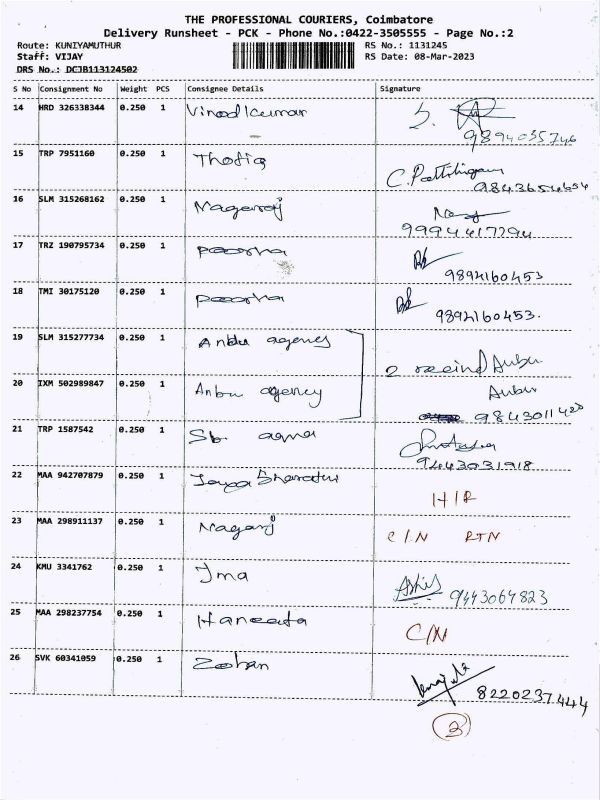 THE PROFESSIONAL COURIERS, Coimbatore
Delivery Runsheet - PCK - Phone No.:0422-3505555 - Page No.:2
Route: KUNIYAMUTHUR RS No.: 1131245
Staff: VIJAY RS Date: 08-Mar-2023
DRS No.: DCJB113124502
S No Consignment No Weight PCS Consignee Details Signature
14 HRD 326338344 0.250 1 Vinodkumar
9894035746
15 TRP 7951160 0.250 1
9843654654
16 SLM 315268162 0.250 1 Nagaraj
9994417294
17 TRZ 190795734 0.250 1 poorna
9892160453
18 TMI 30175120 0.250 1 poorna
9892160453.
19 SLM 315277734 0.250 1 Anbu agency
2 received Anbu
20 IXM 502989847 0.250 1 Anbu agency Anbu
9843011420
21 TRP 1587542 0.250 1 Sb.
9443031918
22 MAA 942707879 0.250 1 Jaya Bharathi
H/R
23 MAA 298911137 0.250 1 Nagaraj C/N RTN
24 KMU 3341762 0.250 1 Jma
9443064823
25 MAA 298237754 0.250 1
C/N
26 SVK 60341059 0.250 1 Zohan
8220237444
3